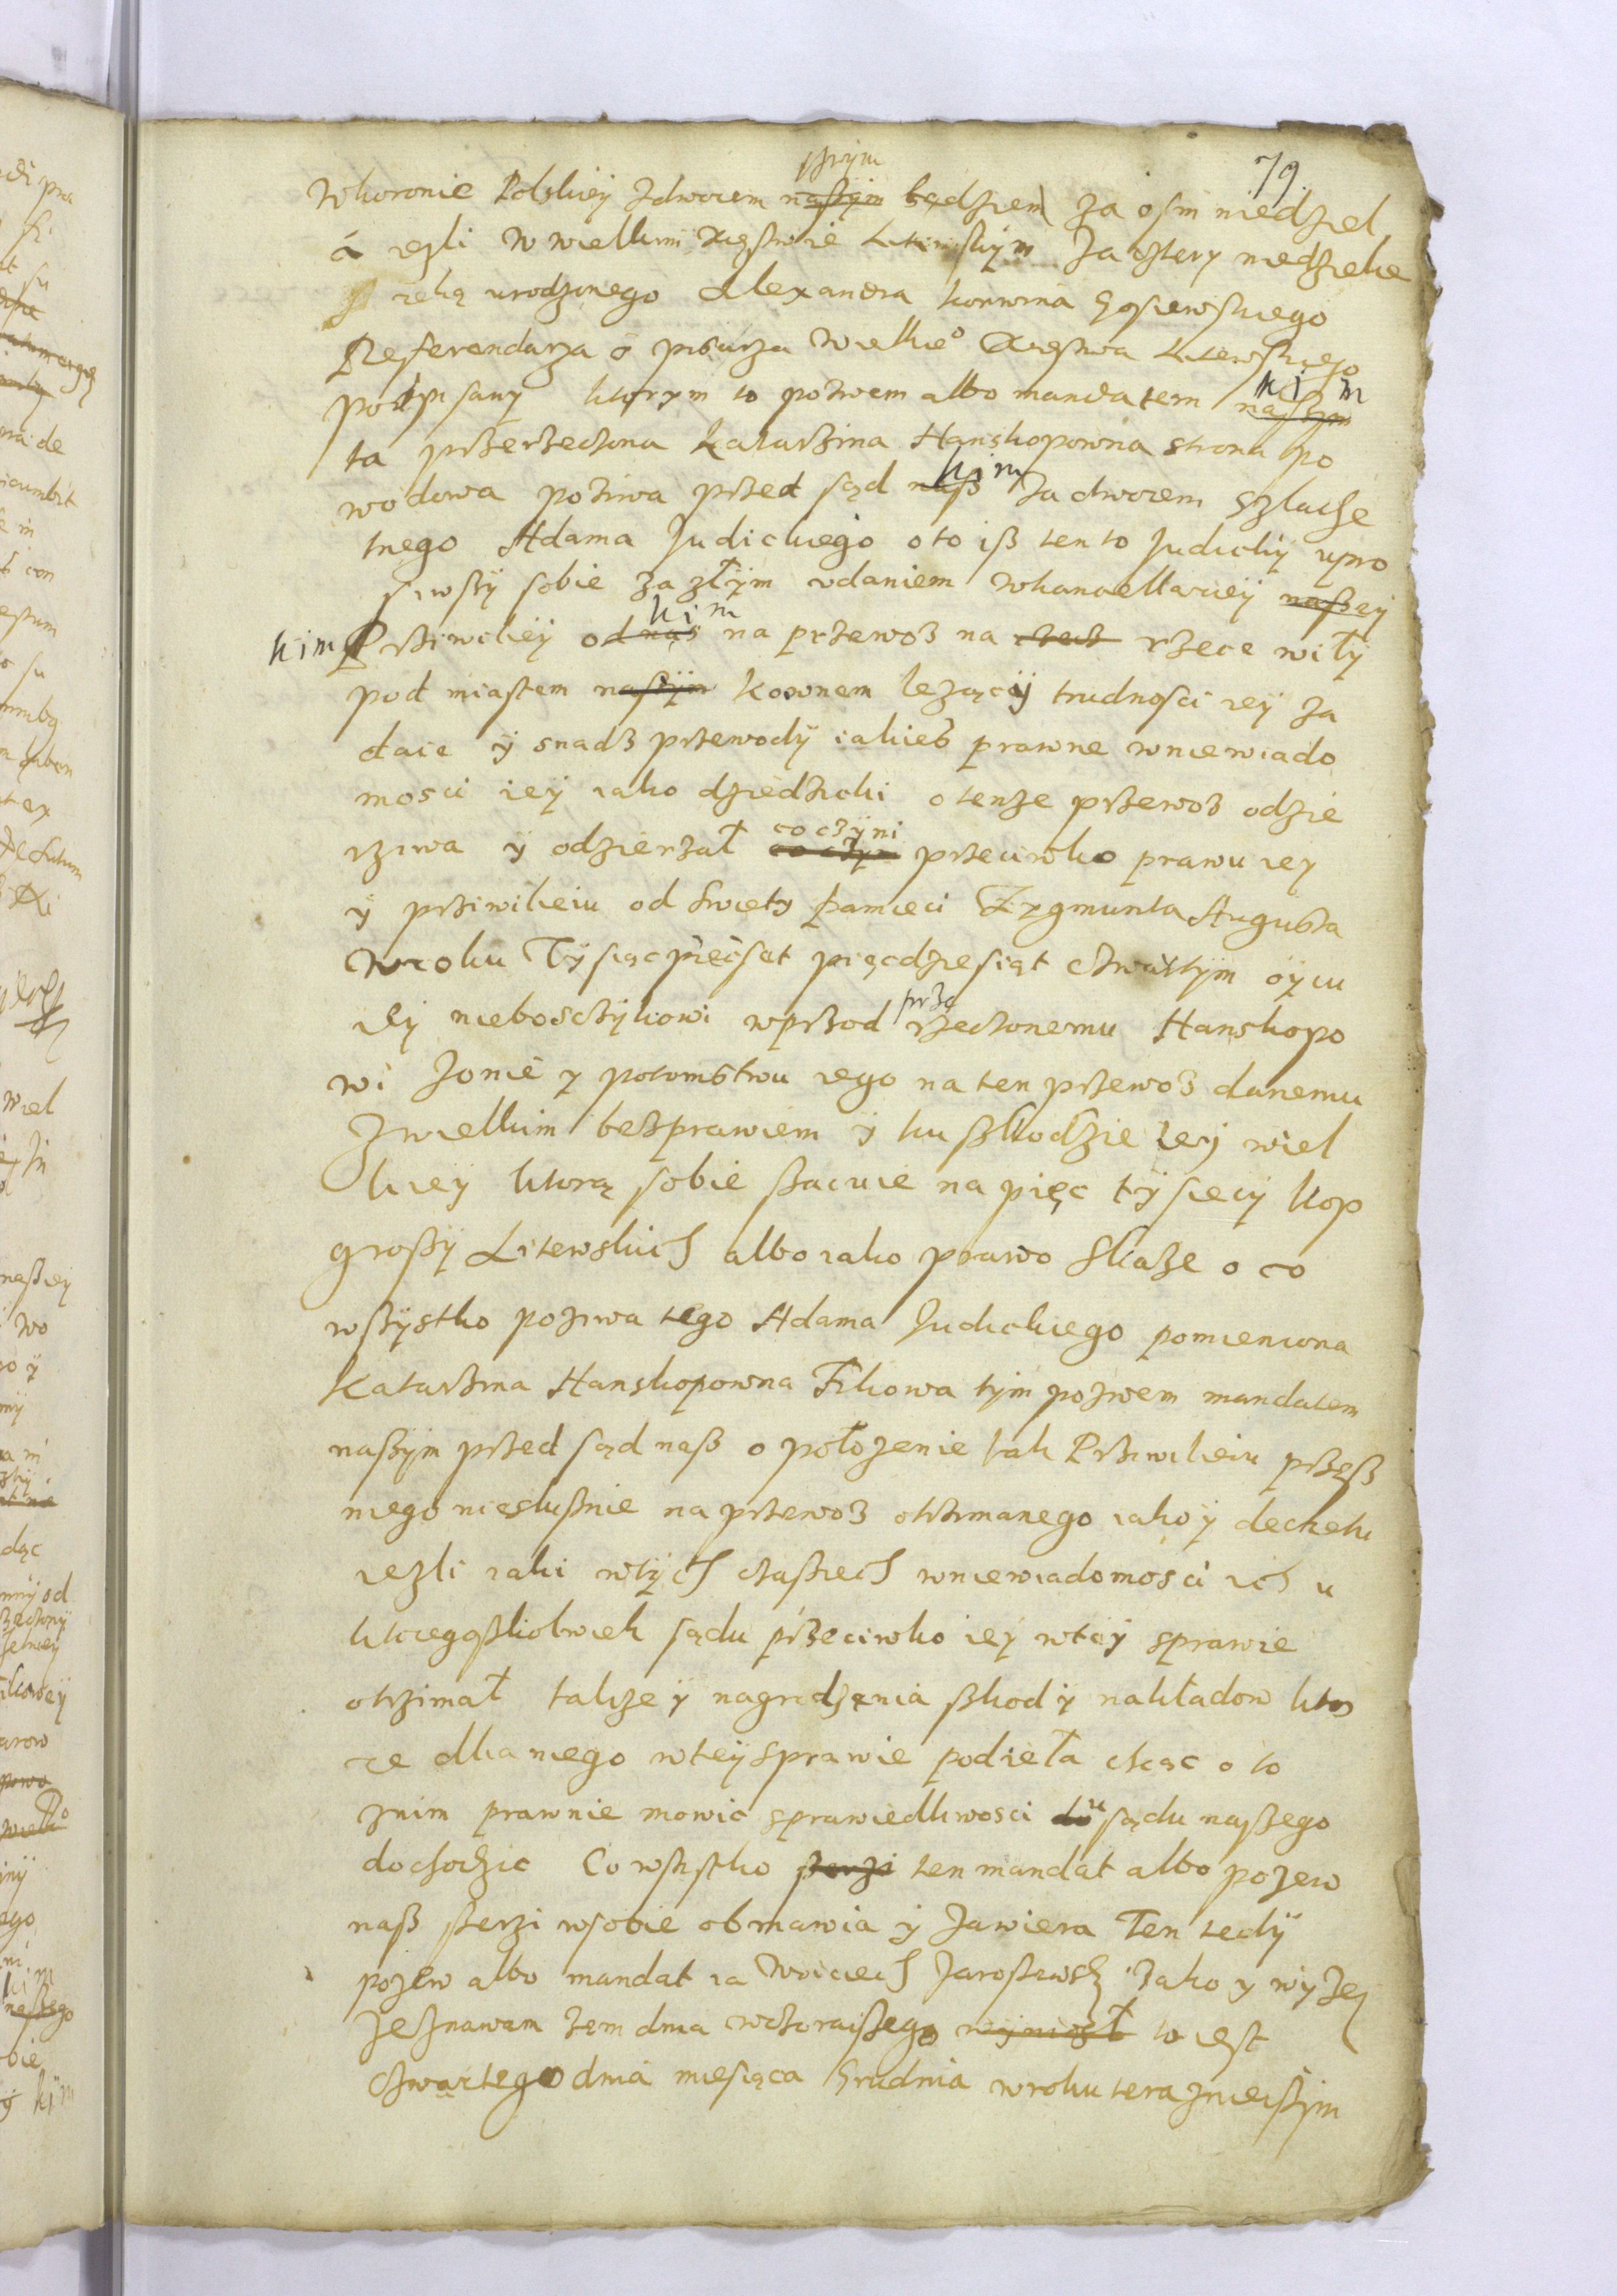 79.
swym
w koronie Polskiey z dworem naszÿm będziem za osm niedziel
á iezli w wielkim xięstwie Litewskÿm za cztery niedziele
ręką urodzonego Alexandra korwina Gosiewskiego
Referendarza ÿ pisarza wielkie° Xięstwa Litewskiego
podpisany ktorym to pozwem albo mandatem naszym
kim
ta przerzeczona Katarzina Hanskopowna strona po
wodowa poziwa przed sąd nasz kim zadworem szlache
tnego Adama Judickiego o to isz ten to Judickÿ upro
siwszÿ sobie za złÿm udaniem w kancellariey naszej
kim Prziwileÿ od nas kim na przewoz na rzece wiłÿ
pod miastem naszÿm kownem lezącÿ trudnosci ieÿ za
daie ÿ snadz przewodÿ iakies prawne w niewiado
mosci ieÿ iako dziedziczki o tenze przewoz odzie
rziwa ÿ odzierzał co czÿni przeciwko prawu iey
ÿ prziwileiu od swięty pamieci Zygmunta Augusta
w roku Tÿsiąc pięcset pięcdziesiąt czwartÿm oÿcu
ieÿ nieboszczÿkowi wprzod prze rzeczonemu Hanskopo
wi zonie y potomstwu iego na ten przewoz danemu
z wielkim bezprawiem ÿ ku szkodzie ieÿ wiel
kiey ktorą sobie szacuie na pięc tÿsiecÿ kop
groszÿ Litewskich albo iako prawo skaze o co
wszÿstko pozwa tego Adama Judickiego pomieniona
Katarzina Hanskopowna Fikowa tÿm pozwem mandatem
naszÿm przed sąd nasz o połozenie tak Prziwileiu przesz
niego nieslusznie na przewoz otrzimanego iako ÿ decretu
iezli iaki w tÿch czasziech w niewiadomosci ich u
ktoregoszkolwiek sądu przeciwko ieÿ w teÿ sprawie
otrzimał takze ÿ nagrodzenia szkod ÿ nakładow kto
re dlia niego w teÿ sprawie podięła chcąc o to
z nim prawnie mowic sprawiedliwosci do u sądu naszego
dochodzic Co wszistko szerzi ten mandat albo pozew
nasz szerzi w sobie obmawia ÿ zawiera Ten tedÿ
pozew albo mandat ia Woiciech Jaroszewsk iako y wyzeÿ
zeznawam tem dnia wczoraiszego wÿniosł to iest
czwartego dnia miesiąca Grudnia w roku terazniejszÿm